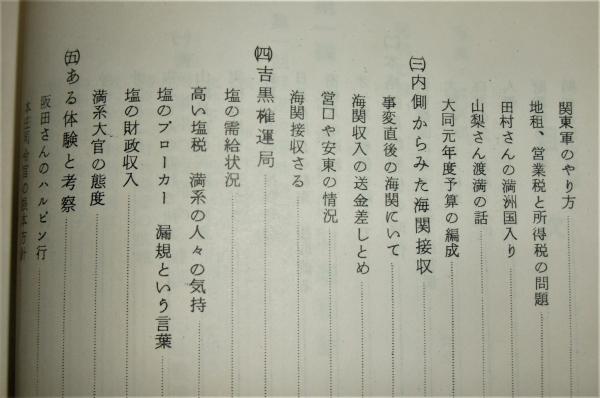 関東軍のやり方
地租、営業税と所得税の問題
田村さんの満洲国入り
山梨さん渡満の話
大同元年度予算の編成
㈢内側からみた海関接収
事変直後の海関にいて
海関収入の送金差しとめ
営口や安東の情況
海関接収さる
㈣吉黒榷運局
塩の需給状況
高い塩税　満系の人々の気持
塩のブローカー　漏規という言葉
塩の財政収入
満系大官の態度
㈤ある体験と考察
阪田さんのハルピン行